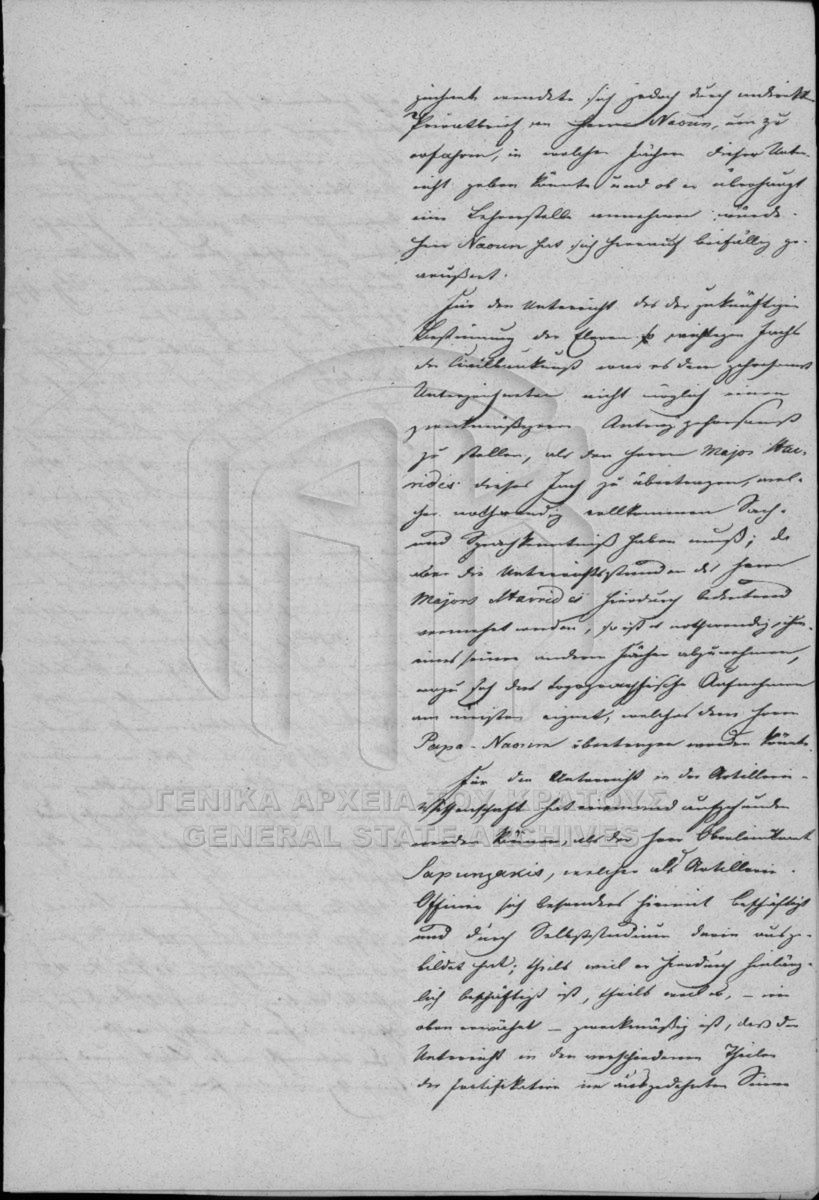 zeichnete wendete sich jedoch durch indirekte
Privatbrief an Herrn Naoum, um zu
erfahren, in welchen Fächern dieser Unter-
richt geben könnte und ob er überhaupt
eine Lehrerstelle annehmen würde.
Herr Naoum hat sich hierauf beifällig ge-
äußert.
Für den Unterricht des der zukünftigen
Bestimmung der Eleven so wichtigen Fachs
der Civilbaukunst war es dem gehorsamst
Unterzeichneten nicht möglich einen
zweckmäßigern Antrag gehorsamst
zu stellen, als dem Herrn Major Stav-
ridis dieses Fach zu übertragen, wel-
cher nothwendig vollkommen Sach-
und Sprachkenntniß haben muß; da
aber die Unterrichtsstunden des Herrn
Majors Stavridis hierdurch bedeutend
vermehrt werden, so ist es nothwendig, ihm
eines seiner andern Fächer abzunehmen,
wozu sich das topographische Aufnehmen
am meisten eignet, welches dem Herrn
Papa-Naoum übertragen werden könnte.
Für den Unterricht in der Artillerie-
Wissenschaft hat niemand aufgefunden
werden können, als der Herr Oberlieutenant
Sapunzakis, welcher als Artillerie-
Offizier sich besonders hiermit beschäftigt
und durch Selbststudium darin ausge-
bildet hat; theils weil er hierdurch hinläng-
lich beschäftigt ist, theils weil es, – wie
oben erwähnt – zweckmäßig ist, daß der
Unterricht in den verschiedenen Theilen
der Fortifikation im ausgedehnten Sinne
ΓΕΝΙΚΑ ΑΡΧΕΙΑ ΤΟΥ ΚΡΑΤΟΥΣ
GENERAL STATE ARCHIVES